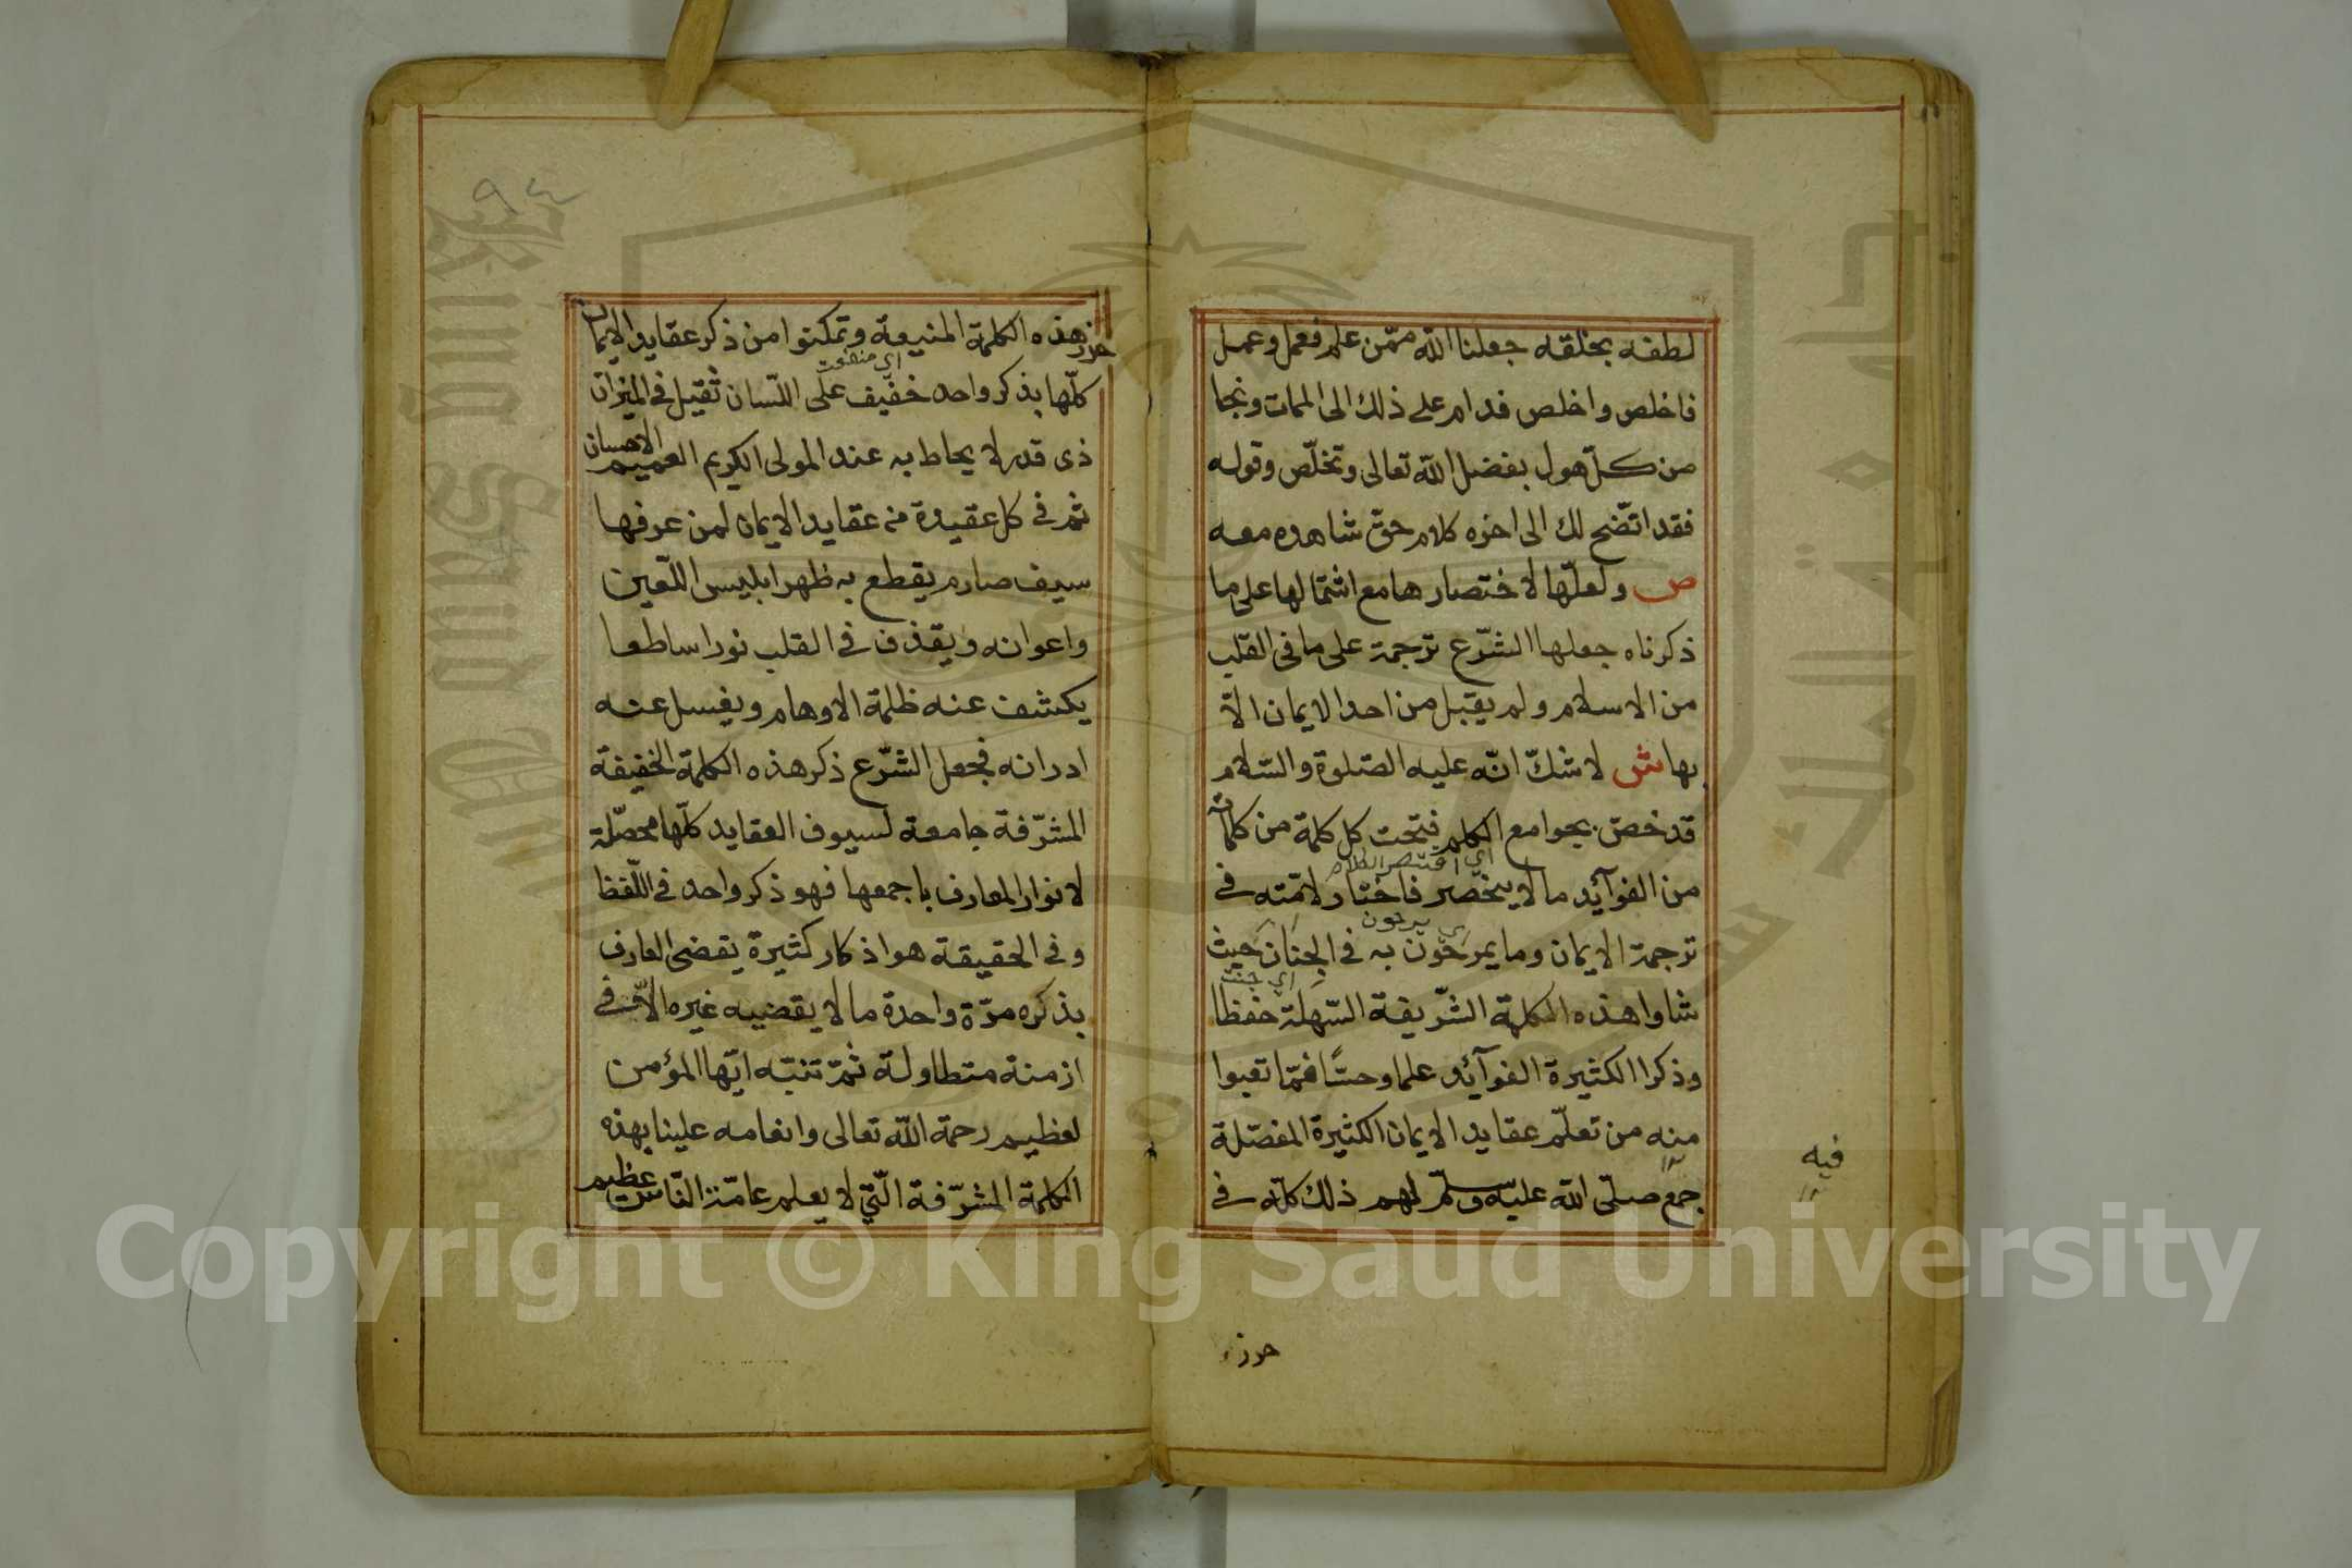 لطفه بخلقه جعلنا اللّه ممّن علم فعمل وعمل
فاخلص واخلص فدام على ذلك الى الممات ونجا
من كلّ هول بفضل اللّه تعالى وتخلّص وقوله
فقد اتّضح لك الى اخره كلام حقّ شاهده معه
ص ولعلّها لاختصارها مع اشتمالها على ما
ذكرناه جعلها الشّرع ترجمة على ما فى القلب
من الاسلام ولم يقبل من احد الايمان الّا
بها ش لا شكّ انّه عليه الصّلوة والسّلام
قد خصّ بجوامع الكلم فتحت كل كلمة من كلماته
من الفوآئد ما لا ينحصر فاختار لامّته فى
اي اقتصر الكلام
ترجمة الايمان وما يمرحون به فى الجنان حيث
اي يرحون
اي جنت
شاوا هذه الكلمة الشّريفة السّهلة حفظا
وذكرا الكثيرة الفوآئد علما وحسّا فمّا تعبوا
منه من تعلّم عقايد الايمان الكثيرة المفصّلة
فيه
جمع صلّى اللّه عليه وسلّم لهم ذلك كلّه فى
حرز
٩٤
حرز هذه الكلمة المنيعة وتمكنوا من ذكر عقايد الايمان
اي منفعت
كلّها بذكر واحد خفيف على اللّسان ثقيل فى الميزان
ذى قدر لا يحاط به عند المولى الكريم العميم الاحسان
ثم فى كل عقيدة من عقايد الايمان لمن عرفها
سيف صارم يقطع به ظهر ابليس اللّعين
واعوانه ويقذف فى القلب نورا ساطعا
يكشف عنه ظلمة الاوهام ويغسل عنه
ادرانه فجعل الشّرع ذكر هذه الكلمة الخفيفة
المشرّفة جامعة لسيوف العقايد كلّها محصّلة
لانوار المعارف باجمعها فهو ذكر واحد فى اللّفظ
وفى الحقيقة هو اذكار كثيرة يقضى العارف
بذكره مرّة واحدة ما لا يقضيه غيره الّا فى
ازمنة متطاولة ثمّ تنبّه ايّها المؤمن
لعظيم رحمة اللّه تعالى وانعامه علينا بهذه
الكلمة المشرّفة الّتى لا يعلم عامّة النّاس عظيم
Copyright © King Saud University